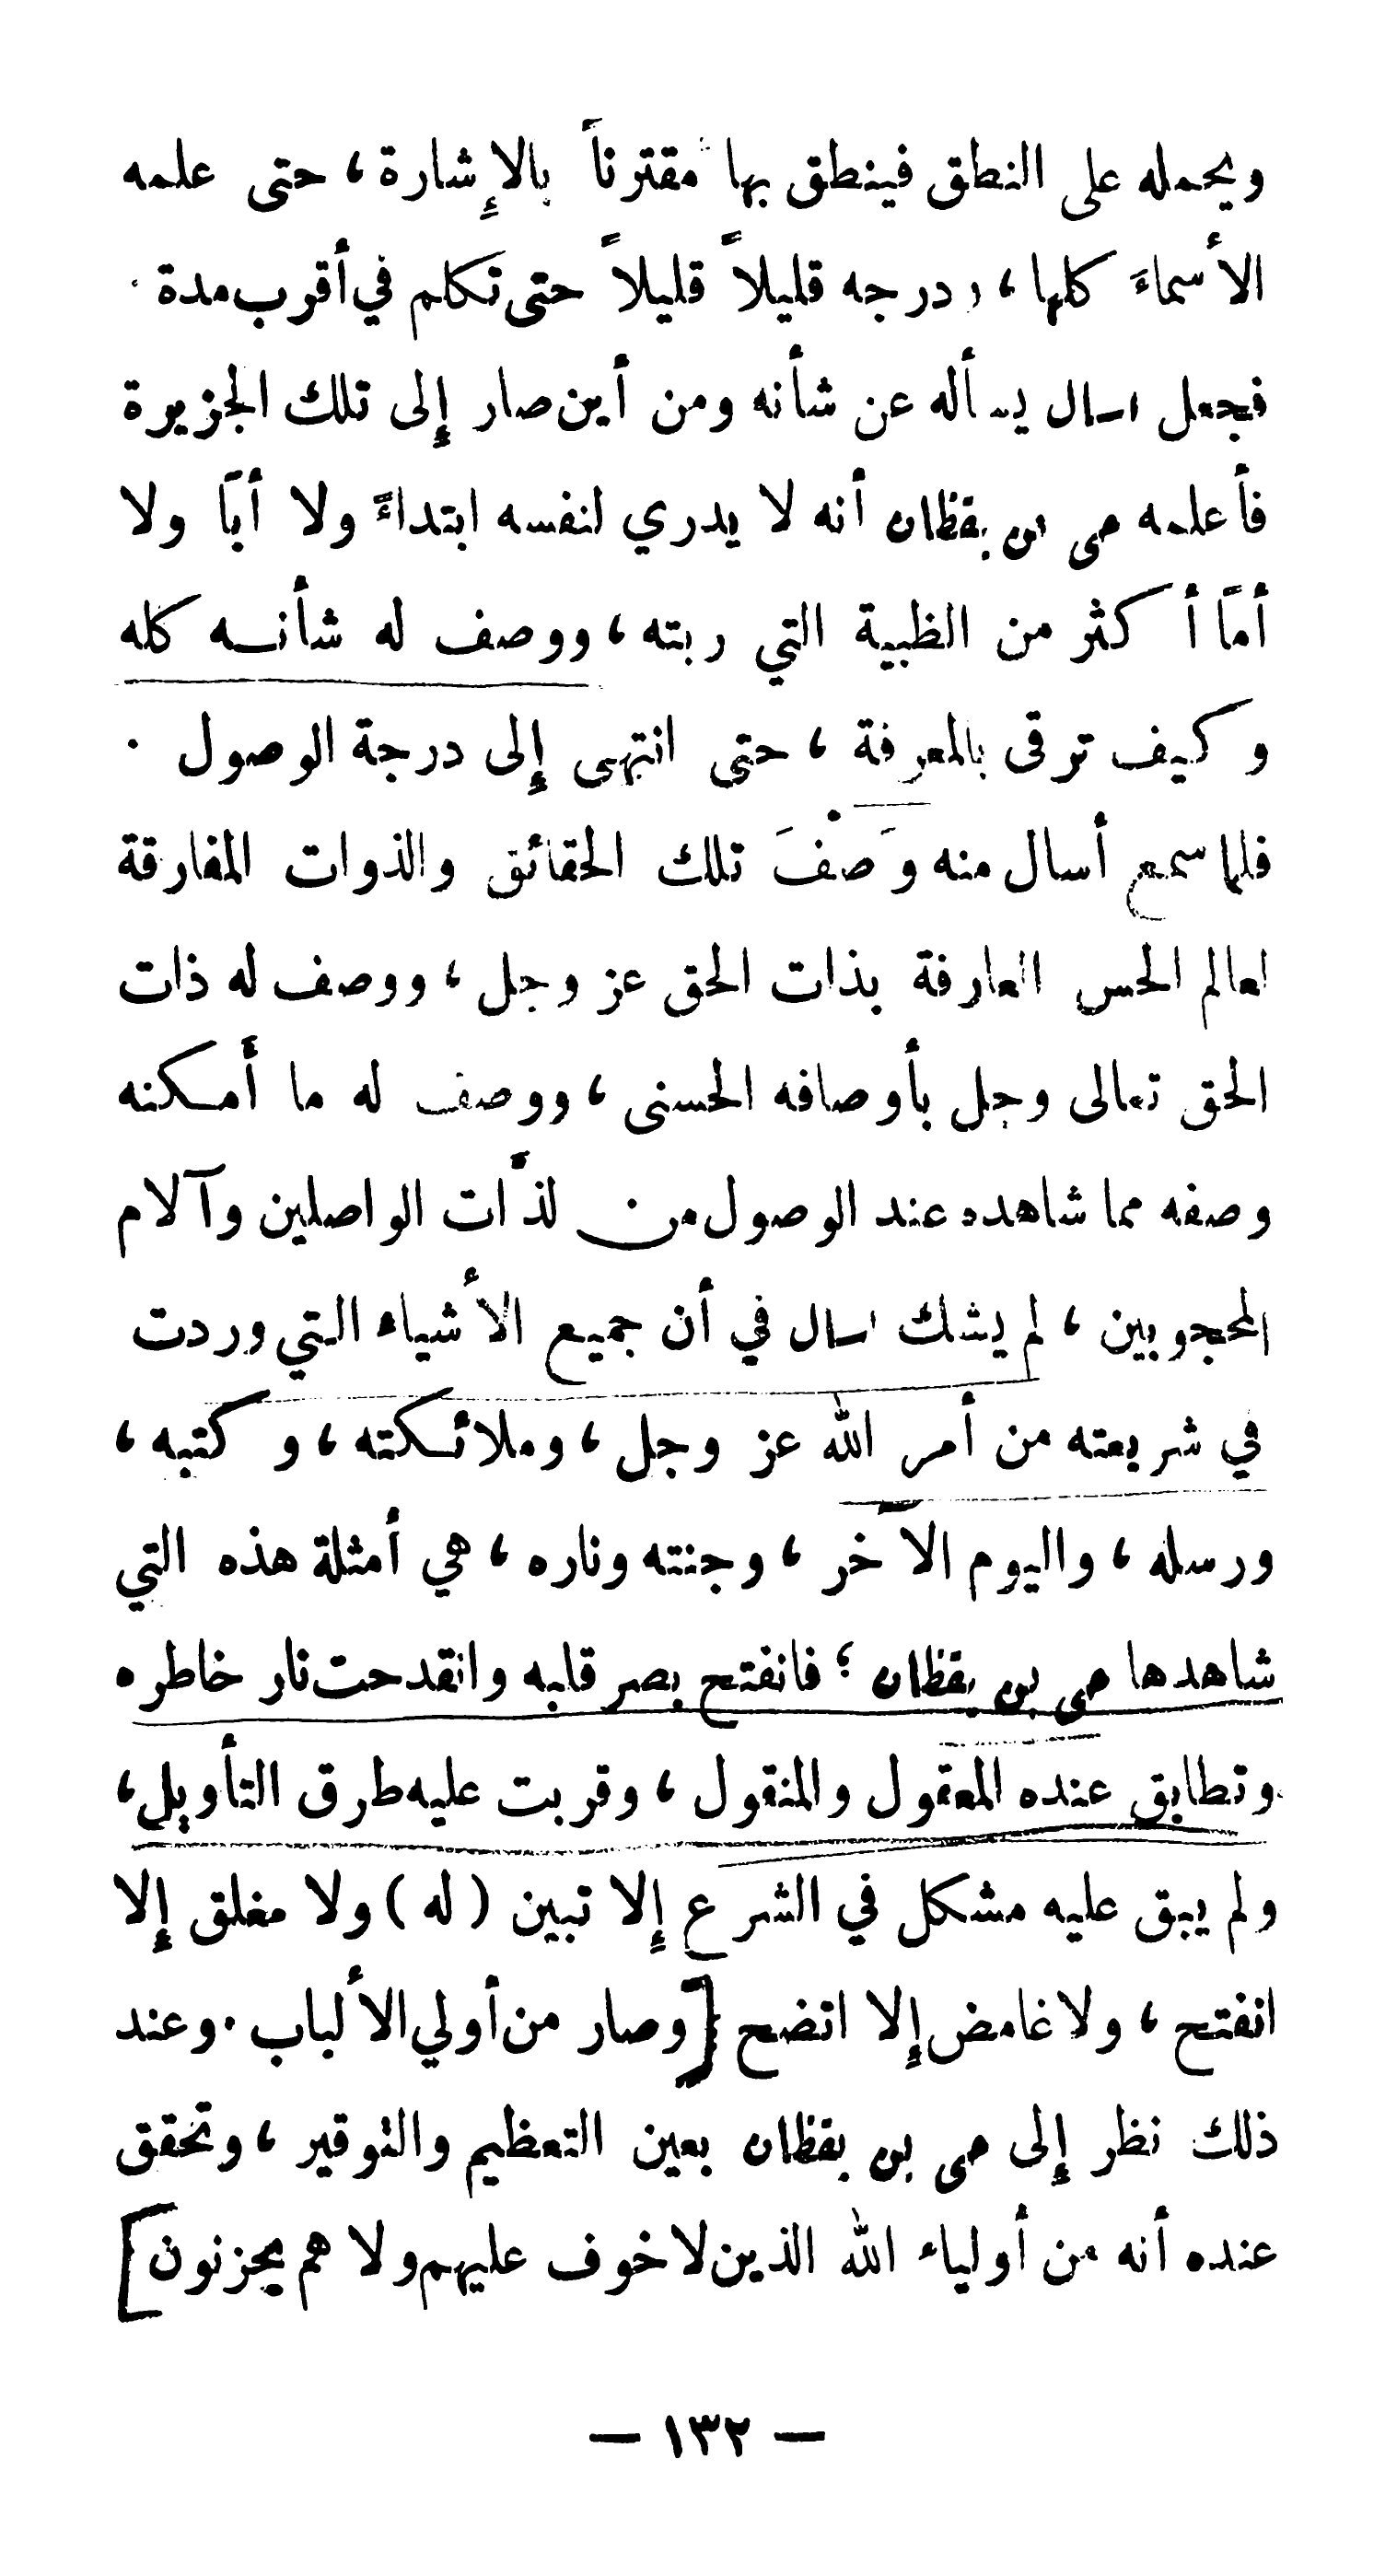 ويحمله على النطق فينطق بها مقترناً بالإِشارة ، حتى علمه
الأسماءَ كلها ، ودرجه قليلاً قليلاً حتى تكلم في أقرب مدة .
فجعل اسال يسأله عن شأنه ومن أين صار إِلى تلك الجزيرة
فأعلمه حي بن يقظان أنه لا يدري لنفسه ابتداءً ولا أبًا ولا
أمًا أكثر من الظبية التي ربته ، ووصف له شأنه كله
وكيف ترقى بالمعرفة ، حتى انتهى إِلى درجة الوصول .
فلما سمع أسال منه وَصْفَ تلك الحقائق والذوات المفارقة
لعالم الحس العارفة بذات الحق عز وجل ، ووصف له ذات
الحق تعالى وجل بأوصافه الحسنى ، ووصف له ما أمكنه
وصفه مما شاهده عند الوصول من لذَّات الواصلين وآلام
المحجوبين ، لم يشك اسال في أن جميع الأشياء التي وردت
في شريعته من أمر الله عز وجل ، وملائكته ، وكتبه ،
ورسله ، واليوم الآخر ، وجنته وناره ، هي أمثلة هذه التي
شاهدها حي بن يقظان ؛ فانفتح بصر قلبه وانقدحت نار خاطره
وتطابق عنده المعقول والمنقول ، وقربت عليه طرق التأويل ،
ولم يبق عليه مشكل في الشرع إِلا تبين ( له ) ولا مغلق إِلا
انفتح ، ولا غامض إِلا اتضح [وصار من أولي الألباب . وعند
ذلك نظر إِلى حي بن يقظان بعين التعظيم والتوقير ، وتحقق
عنده أنه من أولياء الله الذين لا خوف عليهم ولا هم يحزنون]
— ١٣٢ —